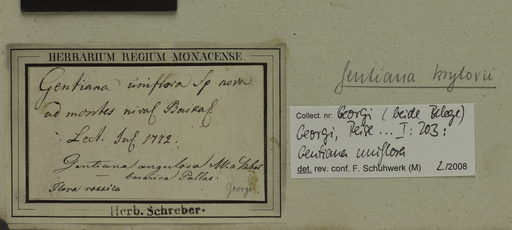 HERBARIUM REGIUM MONACENSE
Gentiana uniflora Sp nova
ad montes nival Baikal
Lect. Jul 1772.
Gentiana angulosa M. a
Pallas.
Flora rossica
Georgi
Herb. Schreber.
Gentiana krylovii
Collect. nr: Georgi (beide Belege)
Georgi, Reise ... I: 203:
Gentiana uniflora
det. rev. conf. F. Schuhwerk (M) 2/2008